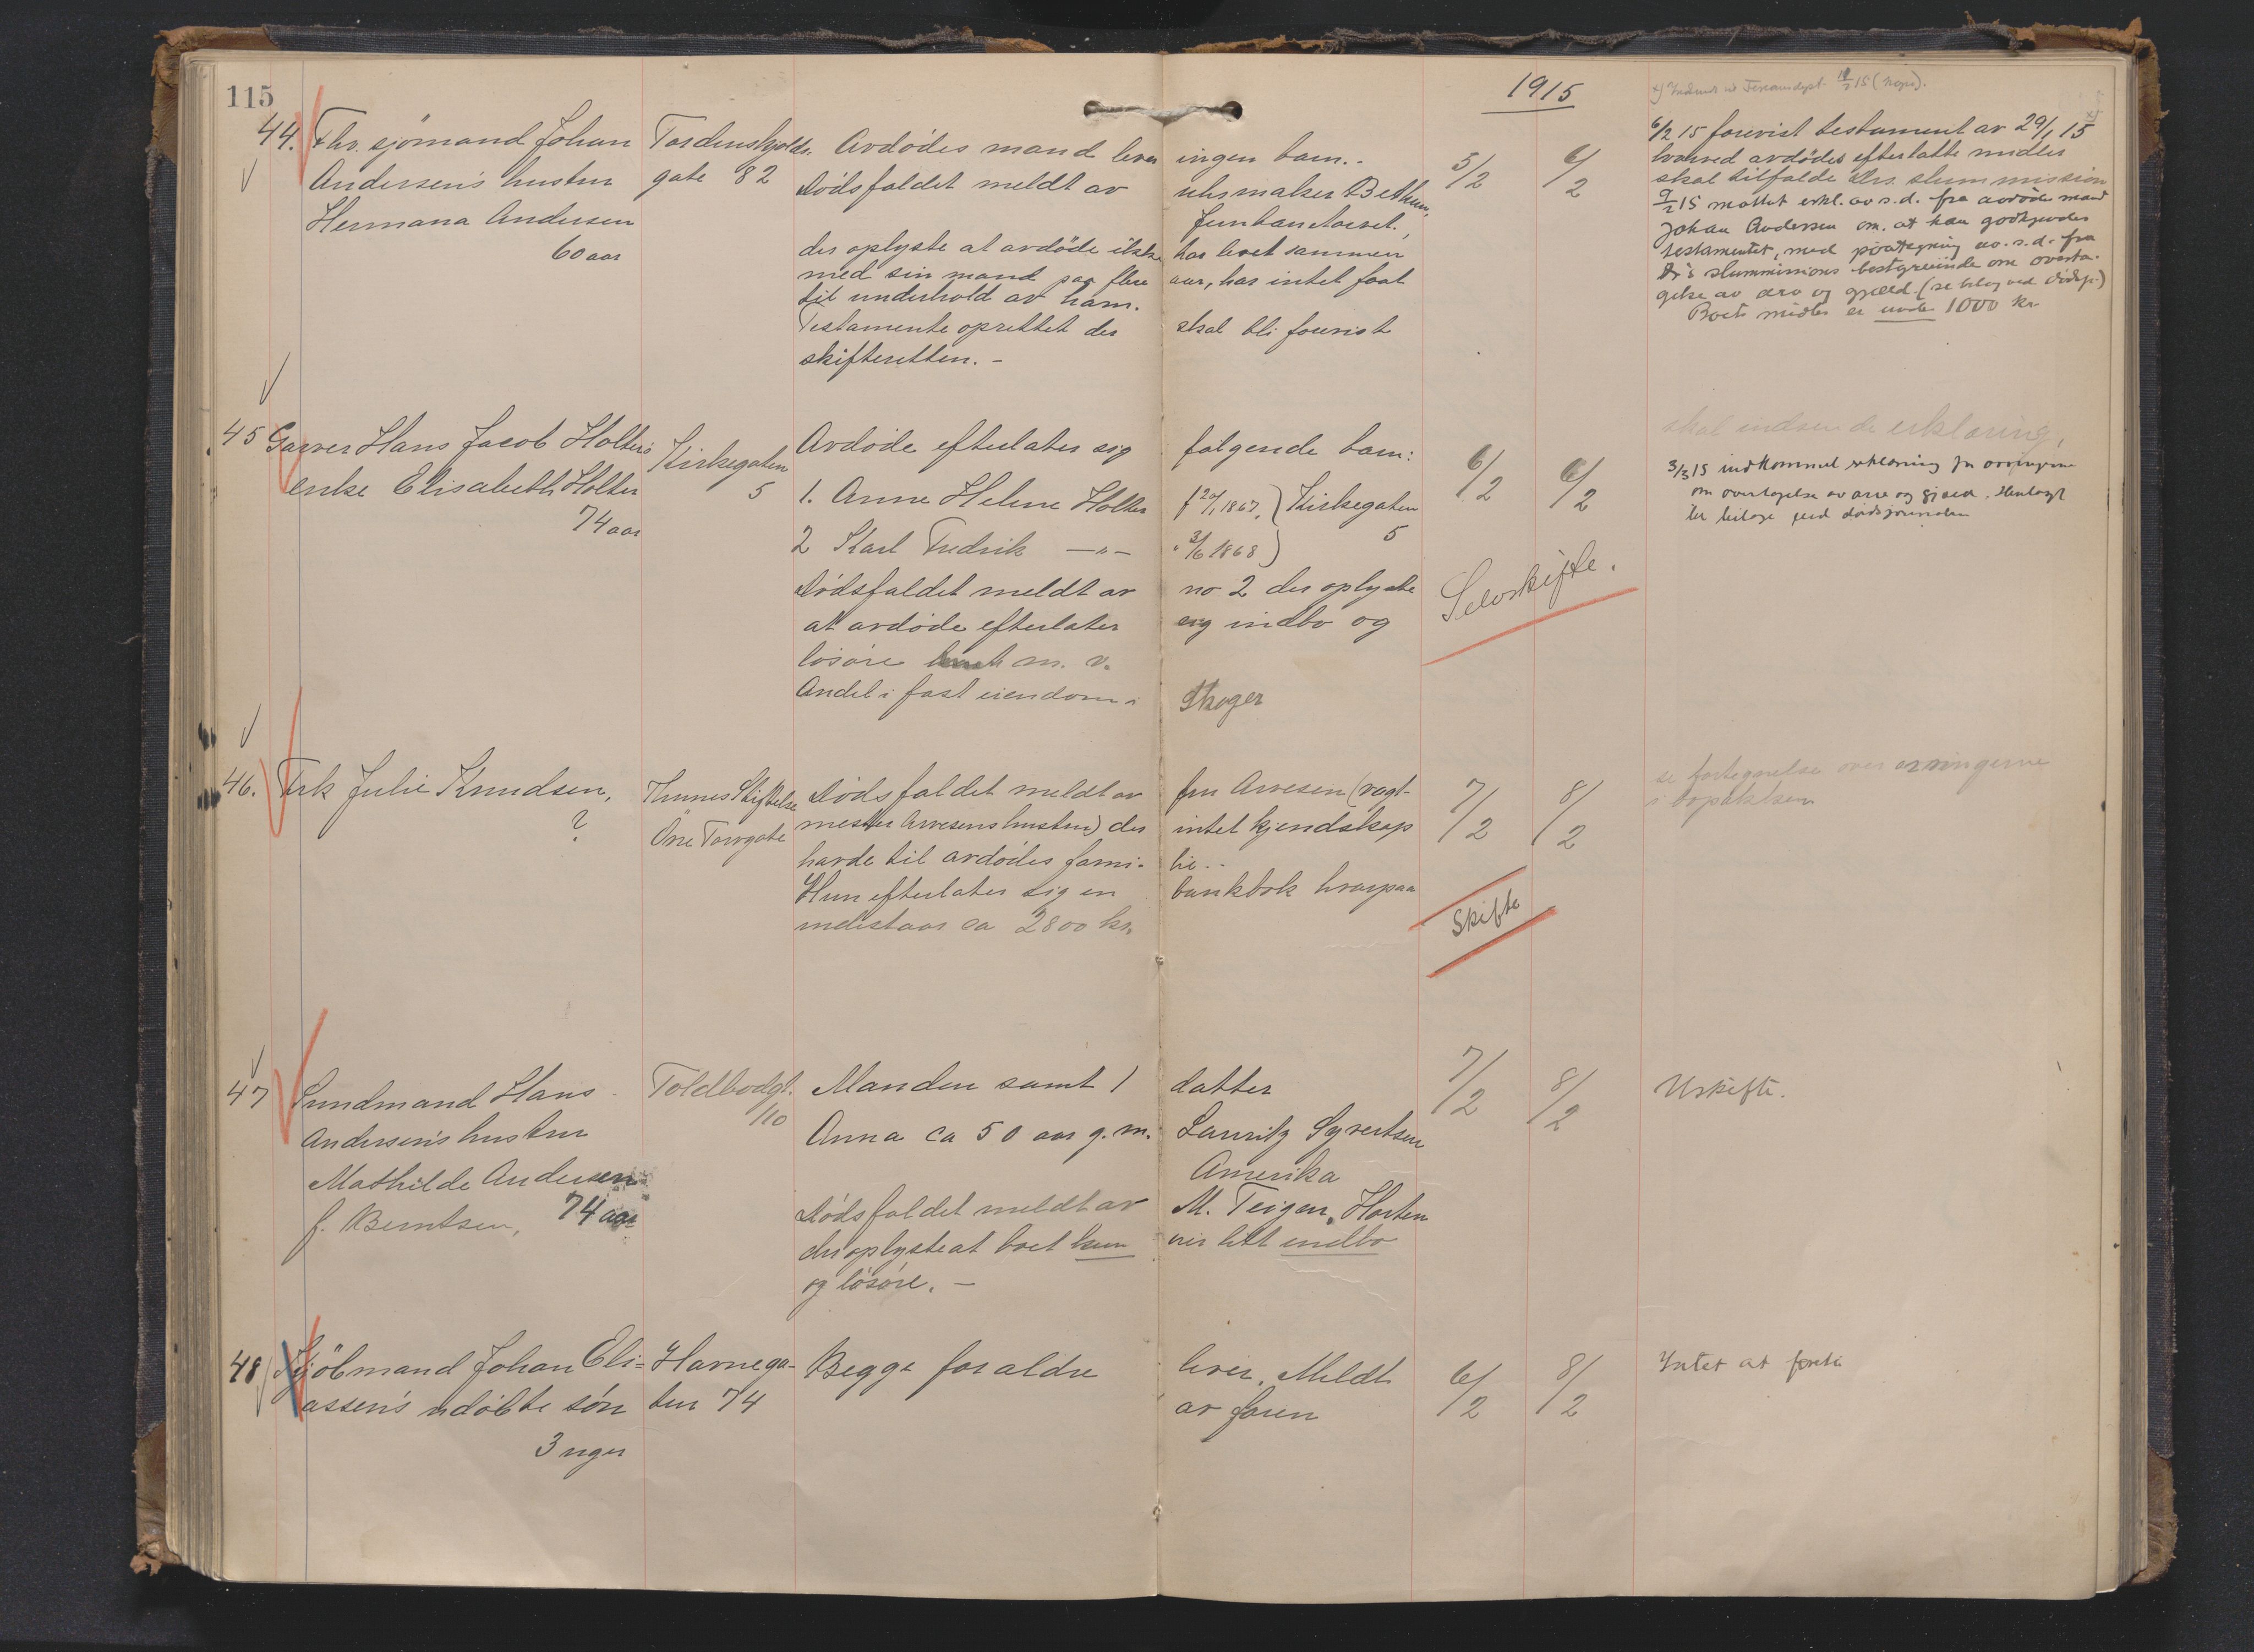 115
1915
44. Fhv. sjömand Johan
Andersen's hustru
Hermana Andersen
60 aar
Tordenskjolds-
gate 82
Avdødes mand lever ingen barn.-
Dødsfaldet meldt av uhrmaker Bethum,
Jernbanetorvet.,
der oplyste at avdöde ikke har levet sammen
med sin mand paa flere aar, har intet faat
til underhold av ham.
Testamente oprettet der skal bli forevist
skifteretten.-
5/2
6/2
6/2 15 forevist testament av 29/1 15
hvorved avdødes efterlatte midler
skal tilfalde slummission
9/2 15 mottat erkl. av s.d. fra avdøde mand
Johan Andersen om at han godkjender
testamentet, med paategning av s.d. fra
slummissions bestyrerinde om overta-
gelse av arv og gjæld. (se bilag ved dødspr.)
Boets midler er under 1000 kr.
45 Garver Hans Jacob Holter's
enke Elisabeth Holter
74 aar
Kirkegaten
5
Avdøde efterlater sig følgende barn:
1. Anne Helene Holter f 20/1 1867, ) Kirkegaten
2 Karl Fredrik —"— " 3/6 1868 ) 5
Dødsfaldet meldt av no 2 der oplyste
at avdøde efterlater sig indbo og
løsøre m. v.
Andel i fast eiendom i Skoger
6/2
6/2
Selvskifte.
skal indsende erklæring,
3/3 15 indkommet erklæring fra arvingerne
om overtagelse av arv og gjæld. Henlagt
som bilage ved dødsjournalen
46. Frk Julie Knudsen,
?
Thunes Stiftelse
Övre Torvgate
Dødsfaldet meldt av fru Arvesen (vagt-
mester Arvesens hustru) der intet kjendskap
havde til avdødes fami- lie.-
Hun efterlater sig en bankbok hvorpaa
indestaar ca 2800 kr.
7/2
8/2
Skifte
se fortegnelse over arvingerne
i bopakken
47 Sundmand Hans
Andersen's hustru
Mathilde Andersen
f. Berntsen, 74 aar
Toldbodgt.
110
Manden samt 1 datter
Anna ca 50 aar g. m. Lauritz Syvertsen
Amerika
Dødsfaldet meldt av M. Teigen, Horten
der oplyste at boet kun eier litt indbo
og løsøre.—
7/2
8/2
Uskifte.
48 Kjöbmand Johan Eli=
assen's udöbte sön
3 uger
Havnega-
ten 74
Begge forældre lever. Meldt
av faren
6/2
8/2
Intet at foreta